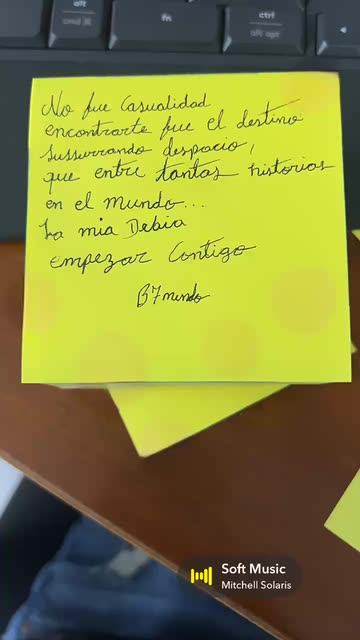 alt
cmd ⌘
fn
ctrl
alt opt
No fue Casualidad
encontrarte fue el destino
Sussurrando despacio,
que entre tantas historias
en el Mundo...
La mia Debia
empezar Contigo
B7mundo
Soft Music
Mitchell Solaris